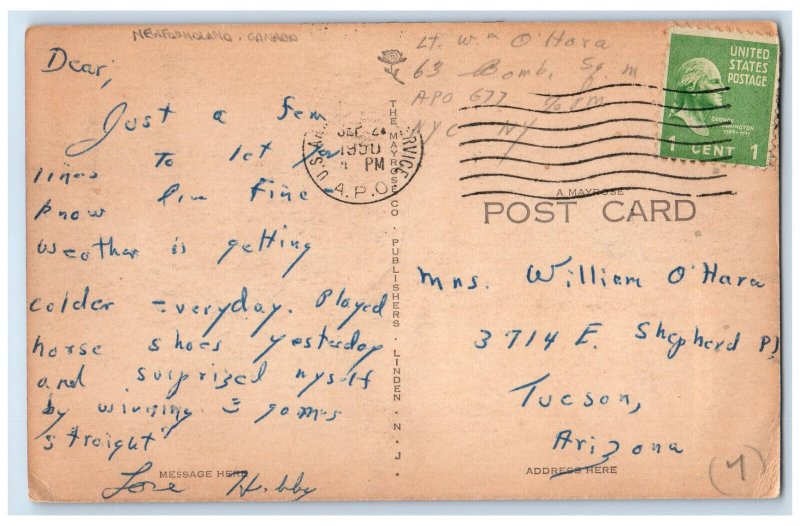 NEWFOUNDLAND. CANADA
Dear,
Just a few
lines to let you
know I'm Fine -
weather is getting
colder everyday. Played
horse shoes yesterday
and surprized myself
by winning 3 games
straight
Love Hubby
MESSAGE HERE
THE MAYROSE CO. PUBLISHERS. LINDEN. N. J.
Lt. Wm O'Hara
63 Bomb. Sq
APO 677 % PM
NYC NY
SEP 2
1950
PM
U.S. SERVICE
A.P.O.
UNITED
STATES
POSTAGE
GEORGE
WASHINGTON
1 CENT 1
A MAYROSE
POST CARD
Mrs. William O'Hara
3714 E. Shepherd Pl
Tucson,
Arizona
ADDRESS HERE